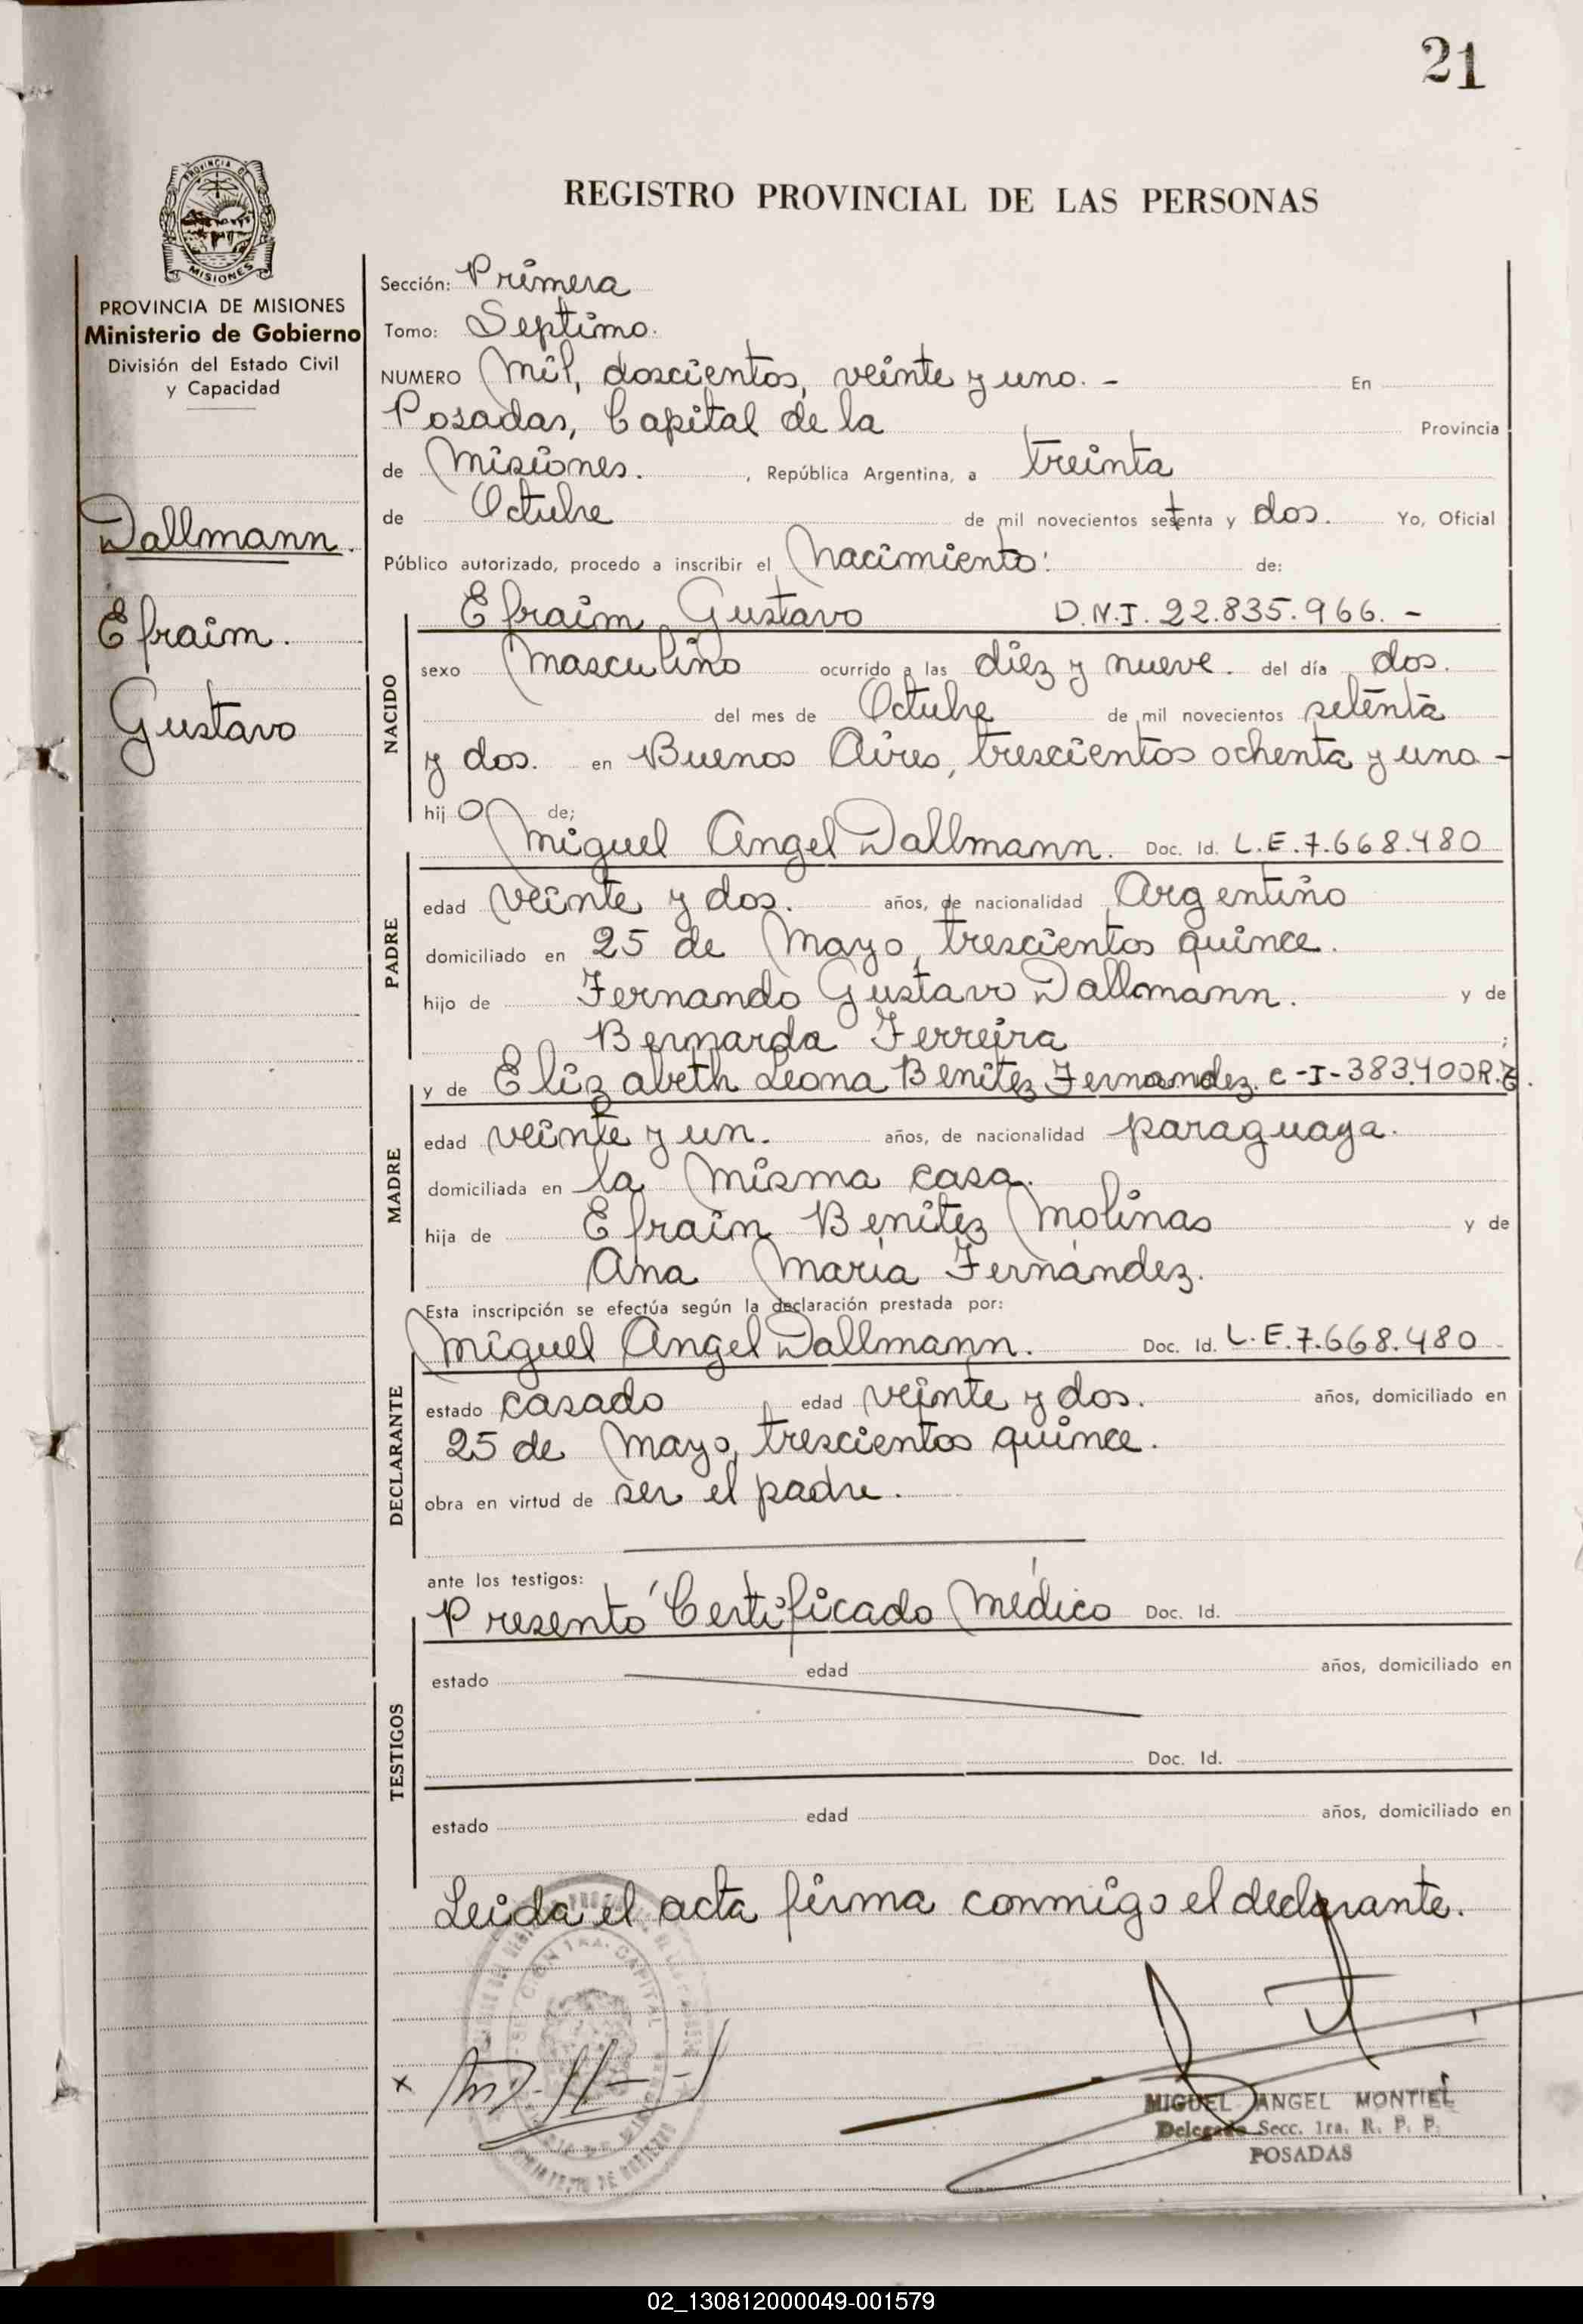 21
PROVINCIA DE
MISIONES
PROVINCIA DE MISIONES
Ministerio de Gobierno
División del Estado Civil
y Capacidad
Dallmann.
Efraim.
Gustavo
REGISTRO PROVINCIAL DE LAS PERSONAS
Sección: Primera
Tomo: Septimo.
NUMERO Mil, doscientos, veinte y uno. - En
Posadas, Capital de la Provincia
de Misiones. , República Argentina, a treinta
de Octubre de mil novecientos setenta y dos. Yo, Oficial
Público autorizado, procedo a inscribir el Nacimiento: de:
NACIDO
Efraim Gustavo D.N.I. 22.835.966. -
sexo Masculino ocurrido a las diez y nueve. del día dos.
del mes de Octubre de mil novecientos setenta
y dos. en Buenos Aires, trescientos ochenta y uno -
hijo de;
PADRE
Miguel Angel Dallmann. Doc. Id. L.E.7.668.480
edad veinte y dos. años, de nacionalidad Argentino
domiciliado en 25 de Mayo, trescientos quince.
hijo de Fernando Gustavo Dallmann. y de
Bernarda Ferreira ;
MADRE
y de Elizabeth Leona Benitez Fernandez. C-I-383.400R.
edad veinte y un. años, de nacionalidad paraguaya.
domiciliada en la misma casa.
hija de Efraín Benitez Molinas y de
Ana María Fernández.
Esta inscripción se efectúa según la declaración prestada por:
DECLARANTE
Miguel Angel Dallmann. Doc. Id. L.E.7.668.480
estado casado edad veinte y dos. años, domiciliado en
25 de Mayo, trescientos quince.
obra en virtud de ser el padre.
ante los testigos:
TESTIGOS
Presentó Certificado Médico Doc. Id.
estado edad años, domiciliado en
Doc. Id.
estado edad años, domiciliado en
Leida el acta firma conmigo el declarante.
SECCION 1RA. CAPITAL
x
MIGUEL ANGEL MONTIEL
Delegado Secc. 1ra. R. P. P.
POSADAS
02_130812000049-001579